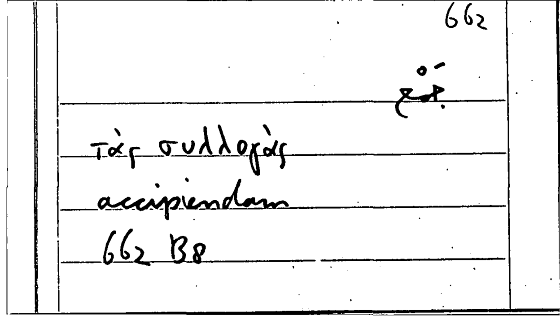 662
τὰς συλλογὰς
accipiendam
662 B8